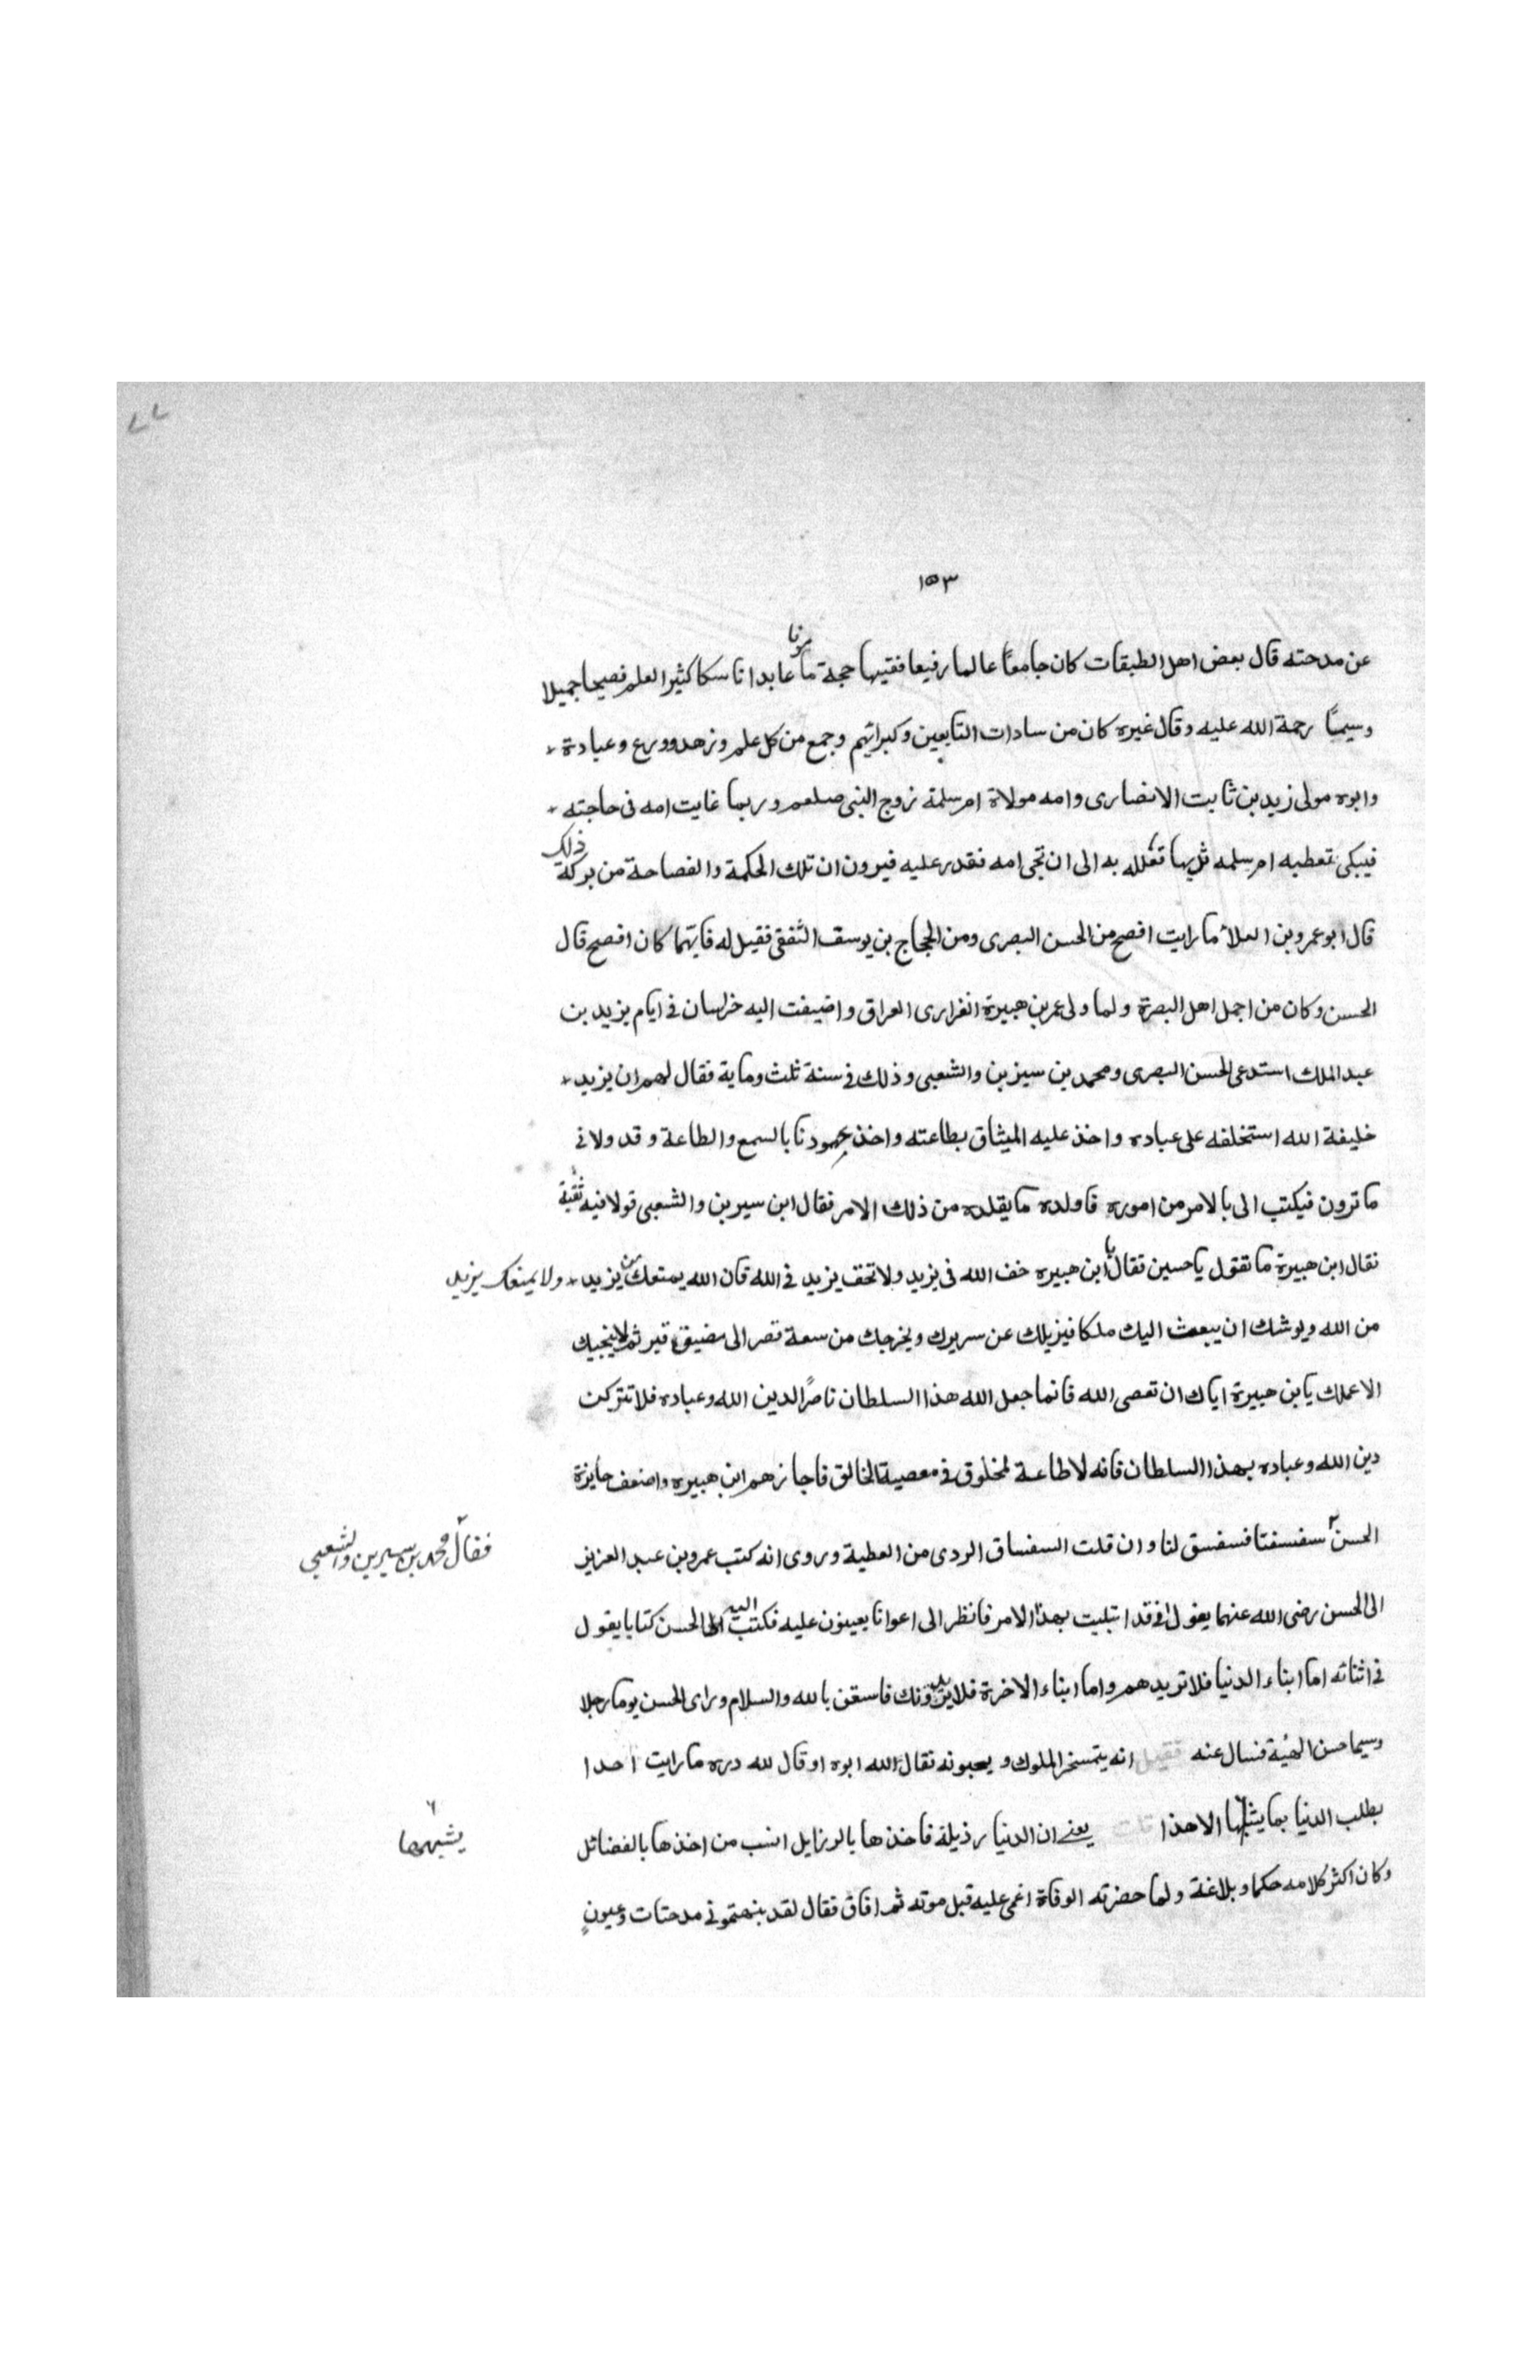 ٧٧
١٥٣
عن مدحته قال بعض اهل الطبقات كان جامعا عالما رفيعا فقيها حجة مامونا عابدا ناسكا كثير العلم فصيحا جميلا
وسيمًا رحمة الله عليه وقال غيره كان من سادات التابعين وكبرائهم وجمع من كل علم وزهد وورع وعبادة
وابوه مولى زيد بن ثابت الانصارى وامه مولاة ام سلمة زوج النبى صلعم وربما غابت امه فى حاجته
فيبكى تعطيه ام سلمه ثديها تعلله به الى ان تجى امه فقدر عليه فيرون ان تلك الحكمة والفصاحة من بركة ذلك
قال ابو عمرو بن العلاء ما رايت افصح من الحسن البصرى ومن الحجاج بن يوسف الثقفى فقيل له فايهما كان افصح قال
الحسن وكان من اجمل اهل البصرة ولما ولى عمر بن هبيرة الفزارى العراق واضيفت اليه خراسان فى ايام يزيد بن
عبد الملك استدعى الحسن البصرى ومحمد بن سيرين والشعبى وذلك فى سنة ثلث وماية فقال لهم ان يزيد
خليفة الله استخلفه على عباده واخذ عليه الميثاق بطاعته واخذ بعهودنا بالسمع والطاعة وقد ولانى
ما ترون فيكتب الى بالامر من اموره فاولده ما يقلده من ذلك الامر فقال ابن سيرين والشعبى قولا فيه تقية
فقال ابن هبيرة ما تقول يا حسين فقال يا ابن هبيره خف الله فى يزيد ولا تخف يزيد فى الله فان الله يمنعك من يزيد ولا يمنعك يزيد
من الله ويوشك ان يبعث اليك ملكا فيزيلك عن سريرك ويخرجك من سعة قصر الى مضيق قبر ثم لا ينجيك
الا عملك يا بن هبيرة اياك ان تعصى الله فانما جعل الله هذا السلطان ناصرًا لدين الله وعباده فلا تتركن
دين الله وعباده بهذا السلطان فانه لا طاعة لمخلوق فى معصية الخالق فاجازهم ابن هبيره واضعف جايزة
الحسن سفسفنا فسفسق لنا وان قلت السفساق الردى من العطية وروى انه كتب عمرو بن عبد العزيز
فقال محمد بن سيرين والشعبى
الى الحسن رضى الله عنهما يقول انى قد ابتليت بهذا الامر فانظر الى اعوانا يعينون عليه فكتب اليه الحسن كتابا يقول
فى اثنائه اما ابناء الدنيا فلا تريدهم واما ابناء الاخرة فلا يريدونك فاستعن بالله والسلام وراى الحسن يوما رجلا
وسيما حسن الهيئة فسال عنه فقيل انه يتمسخر الملوك و يحبونه فقال لله ابوه او قال لله دره ما رايت احدا
يطلب الدنيا بما يشبهها الا هذا قلت يعنى ان الدنيا رذيلة فاخذها بالرزايل انسب من اخذها بالفضائل
يشبهها
وكان اكثر كلامه حكما وبلاغة ولما حضرته الوفاة اغمى عليه قبل موته ثم افاق فقال لقد بنهتمونى من جنات وعيون